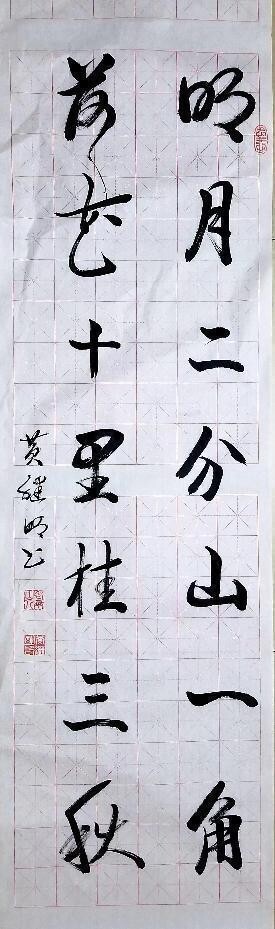 明月二分山一角
荷花十里桂三秋
黄继明书